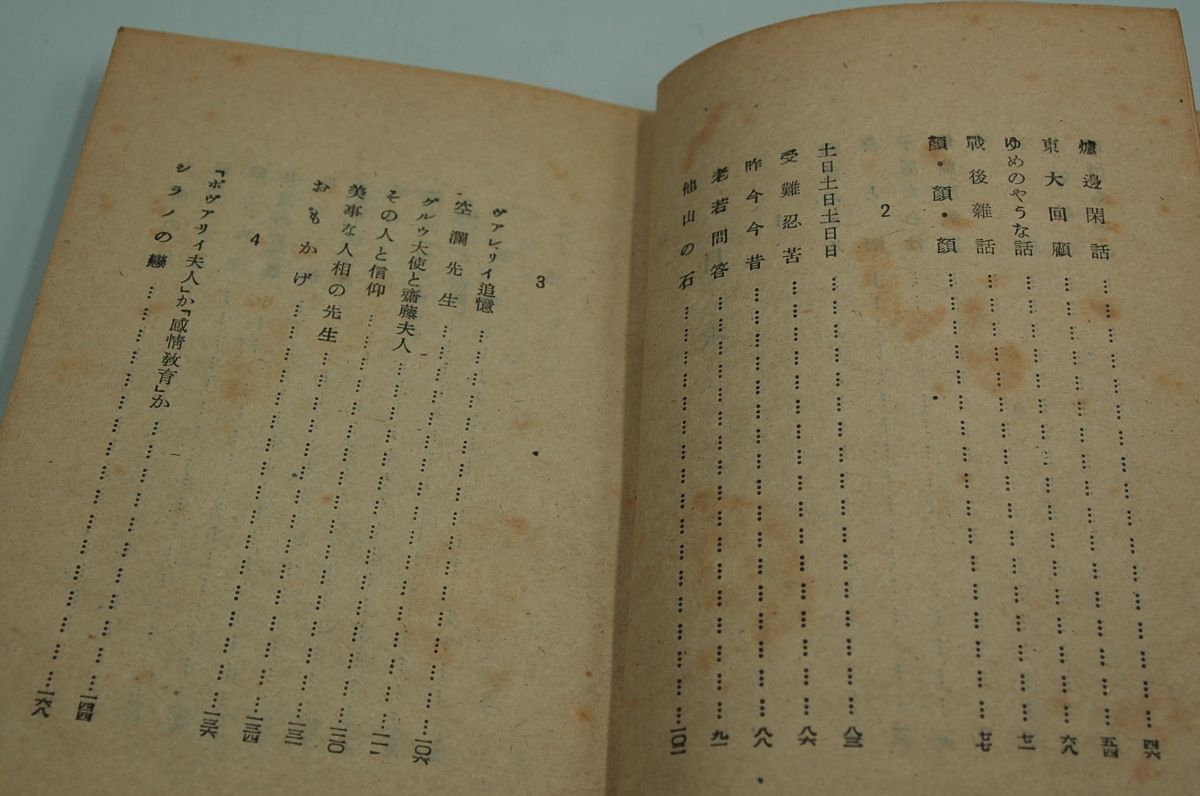 爐邊閑話……………………四六
東大回顧……………………五四
ゆめのやうな話……………………六八
戰後雜話……………………七一
顏・顏・顏……………………七七
2
土日土日土日日……………………八三
受難忍苦……………………八六
昨今今昔……………………八八
老若問答……………………九一
他山の石……………………一〇一
3
ヴアレリイ追憶……………………一〇六
空瀾先生……………………一一一
グルウ大使と齋藤夫人……………………一二〇
その人と信仰……………………一三一
美事な人相の先生……………………一三四
おもかげ……………………一三六
4
「ボヴアリイ夫人」か「感情敎育」か……………………一四四
シラノの戀……………………一六八